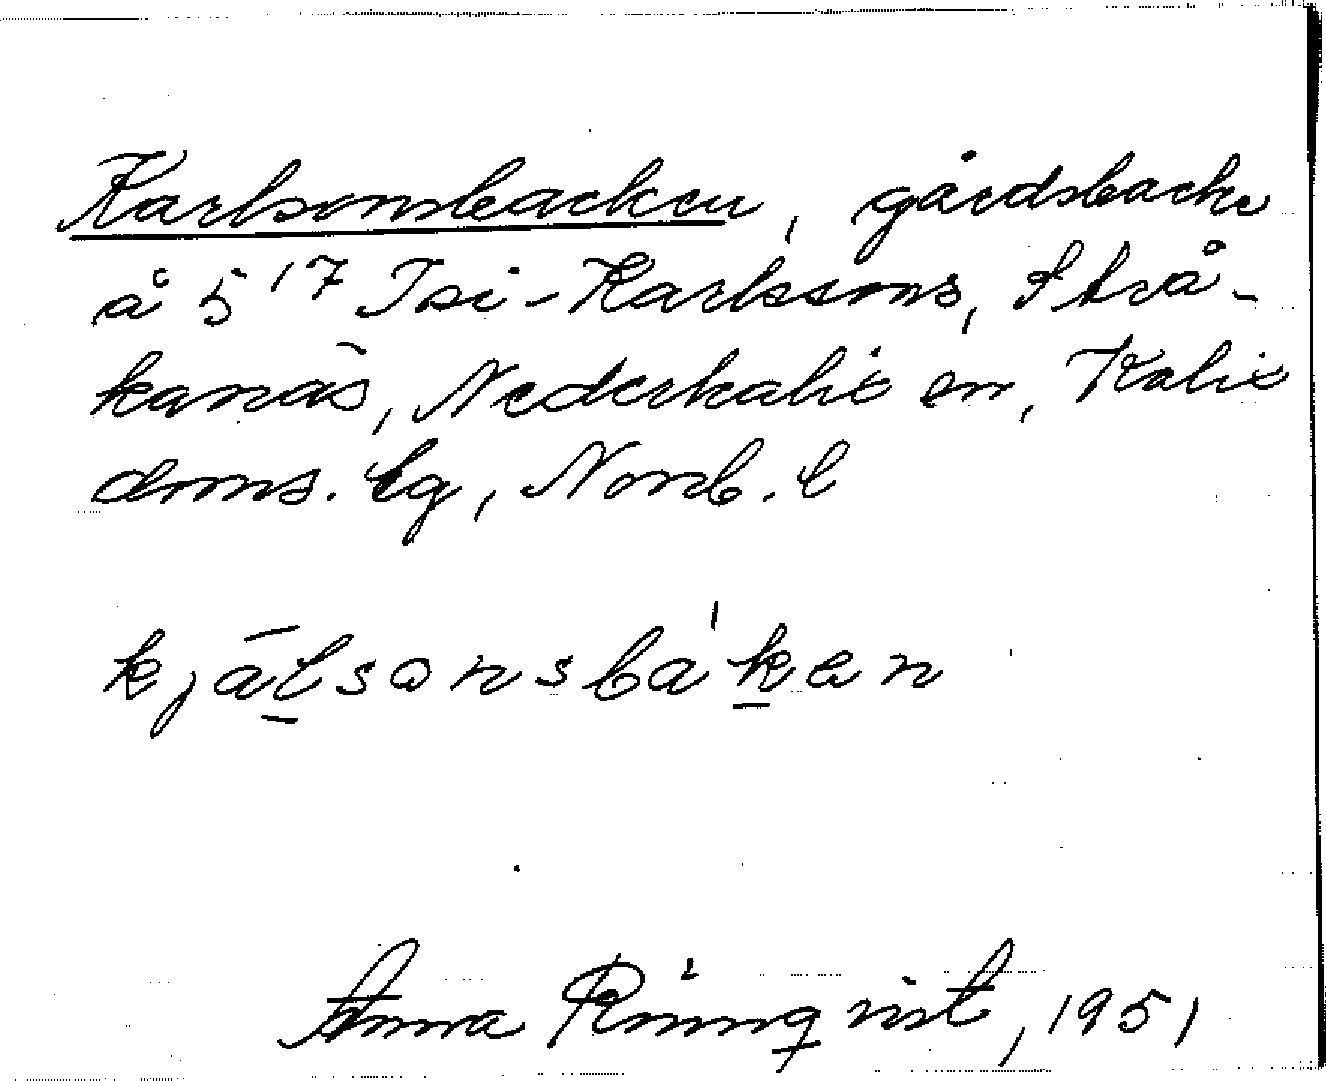 Karlsonsbacken, gårdsbacke
å 5 17 Isi-Karlssons, Strå-
kanäs, Nederkalix sn, Kalix
doms. lg, Norrb. l
kjālsonsbákan
Anna Rönnqvist, 1951